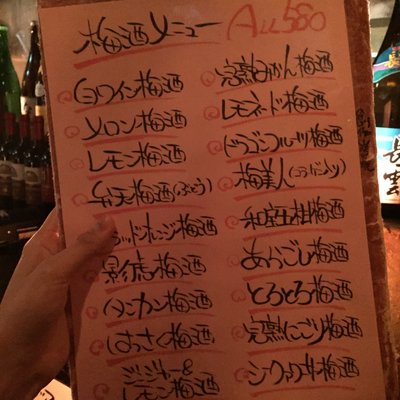 梅酒メニュー All 580
白ワイン梅酒
メロン梅酒
レモン梅酒
弁天梅酒(ぶどう)
ッドオレンジ梅酒
影虎梅酒
タンカン梅酒
はっさく梅酒
ジンジャー&
レモン梅酒
完熟みかん梅酒
レモネード梅酒
ドラゴンフルーツ梅酒
梅美人(コラーゲン入り)
和豆柑梅酒
あらごし梅酒
とろとろ梅酒
完熟にごり梅酒
シークヮーサー梅酒
長雲